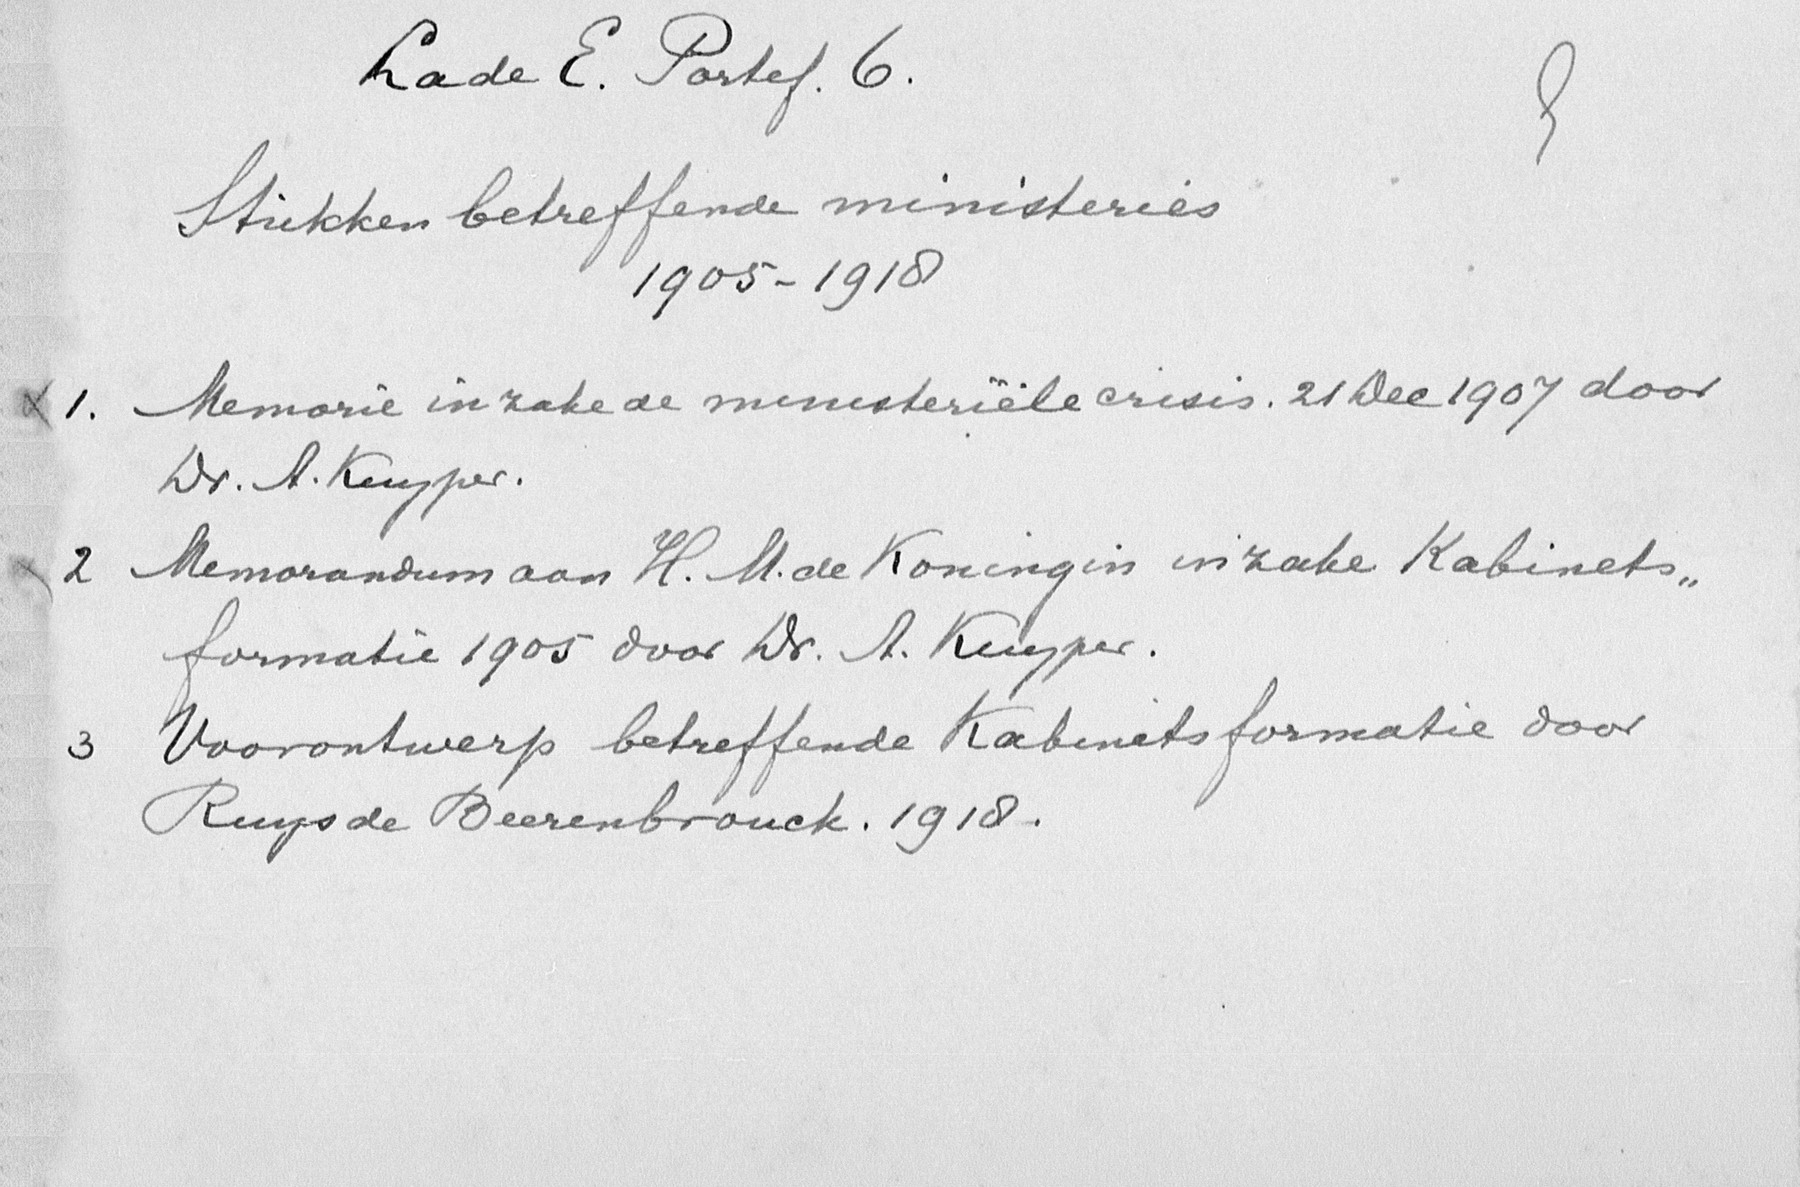 Lade E. Portef. 6.
Stukken betreffende ministeries
1905-1918
1. Memorie inzake de ministeriële crisis. 21 Dec 1907 door
Dr. A. Kuyper.
2 Memorandum aan H. M. de Koningin inzake Kabinets„
formatie 1905 door Dr. A. Kuyper.
3 Voorontwerp betreffende Kabinetsformatie door
Ruys de Beerenbrouck. 1918.